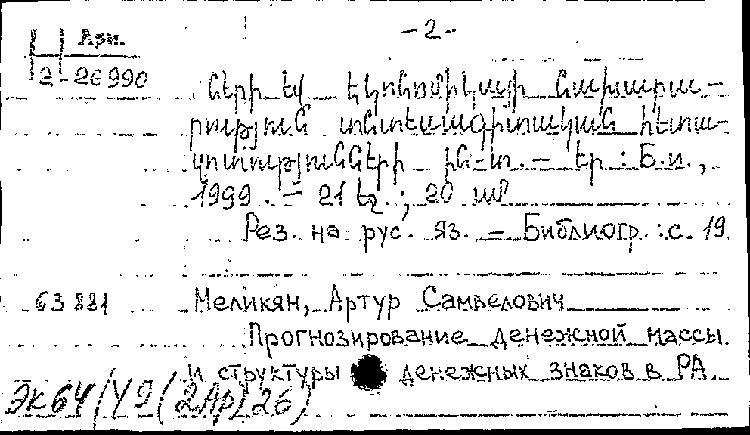 Арм.
- 2 -
2-26990
ների եվ էկոնոմիկայի նախարա-
րություն տնտեսագիտական հետա-
զոտությունների ին-տ. - Եր : Б.и.,
1999. - 21 էջ ; 20 սմ
Рез. на рус. яз. - Библиогр.: с. 19
63881 Меликян, Артур Самвелович
Прогнозирование денежной массы
и структуры денежных знаков в РА.
Эк64/У9(2Ар)26)